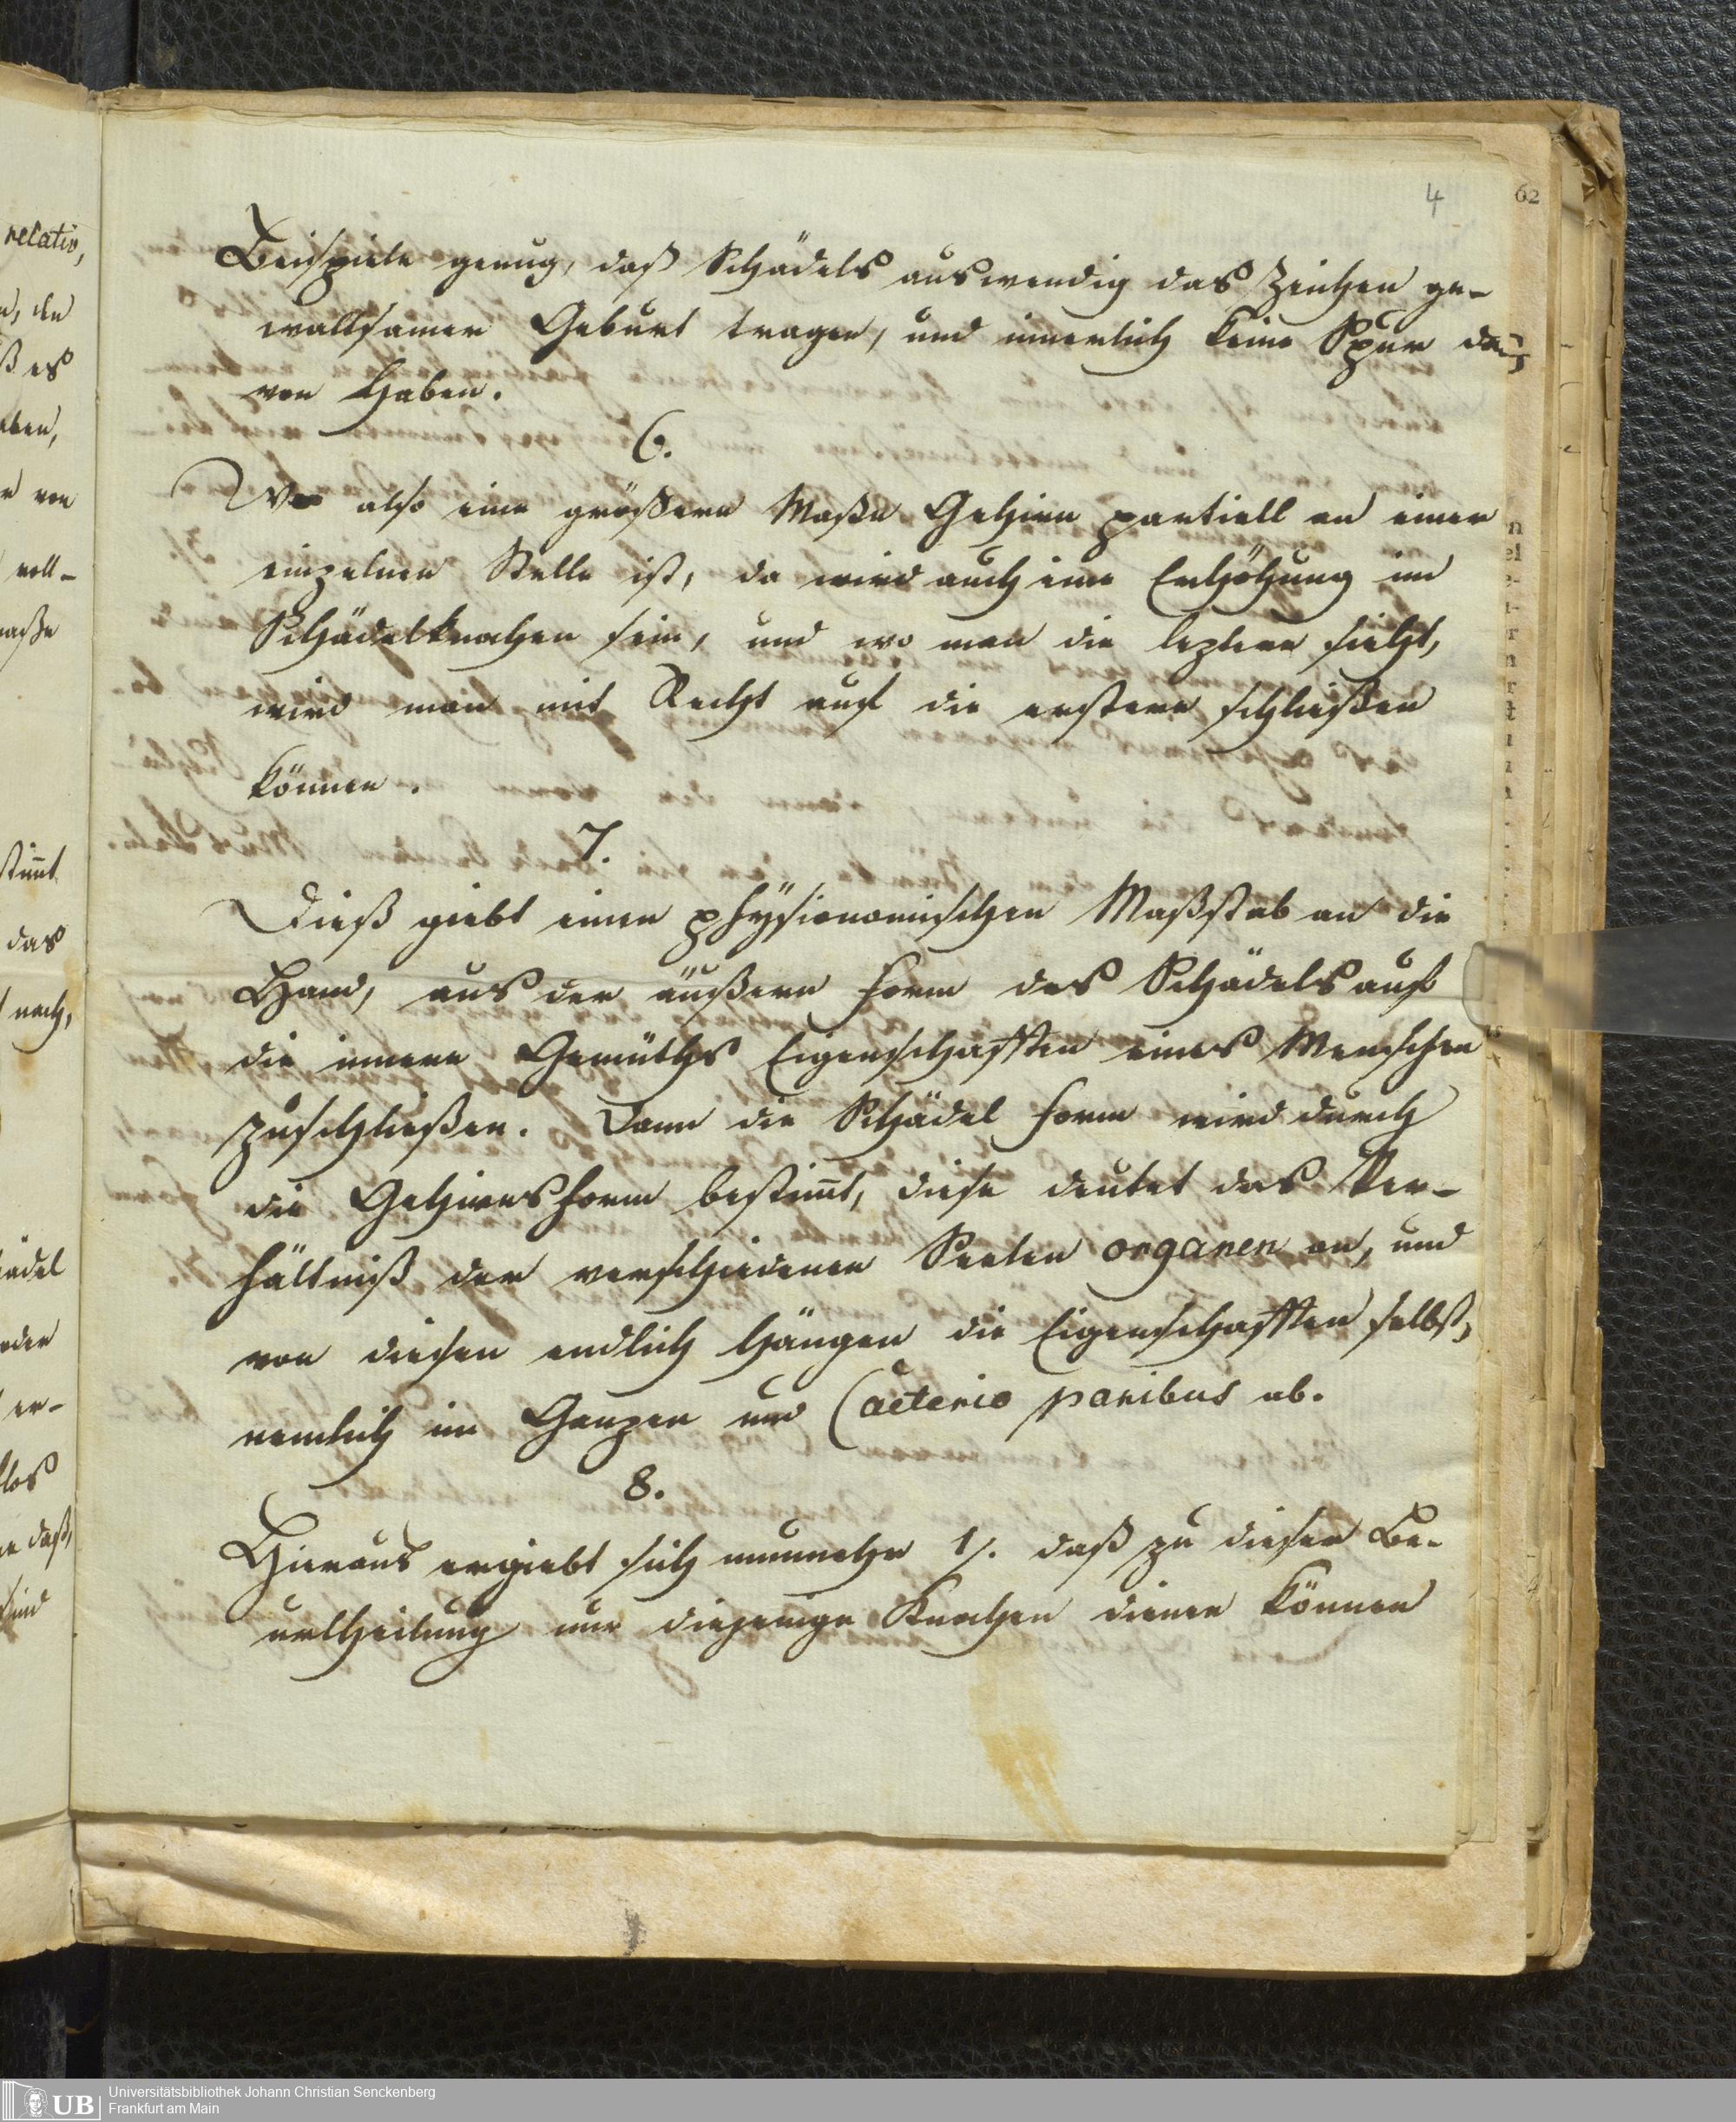 4
62
Beispiele genug, daß Schädels auswendig das Zeichen ge-
waltsamer Geburt tragen, und innerlich keine Spur da-
von haben.
6.
Wo also eine größere Maße Gehirn partiell an einer
einzelnen Stelle ist, da wird auch eine Erhöhung im
Schädelknochen sein, und wo man die leztere sieht,
wird man mit Recht auf die erstere schließen
können.
7.
Dieß giebt einen physionomischen Maßstab an die
Hand, aus der äußern Form des Schädels auf
die innere Gemüths Eigenschafften eines Menschen
zuschließen. Dann die Schädel form wird durch
die Gehirnsform bestimt, diese deutet das Ver-
hältniß der verschiedenen Seelen organen an, und
von diesen endlich hängen die Eigenschafften selbst,
nemlich im Ganzen und Caeteris paribus ab.
8.
Hieraus ergiebt sich nunmehr 1/. daß zu dieser Be-
urtheilung nur diejenige Knochen dienen können
relativ,
ß es
von
voll-
stimt
das
nach,
oder
er-
daß,
UB
Universitätsbibliothek Johann Christian Senckenberg
Frankfurt am Main